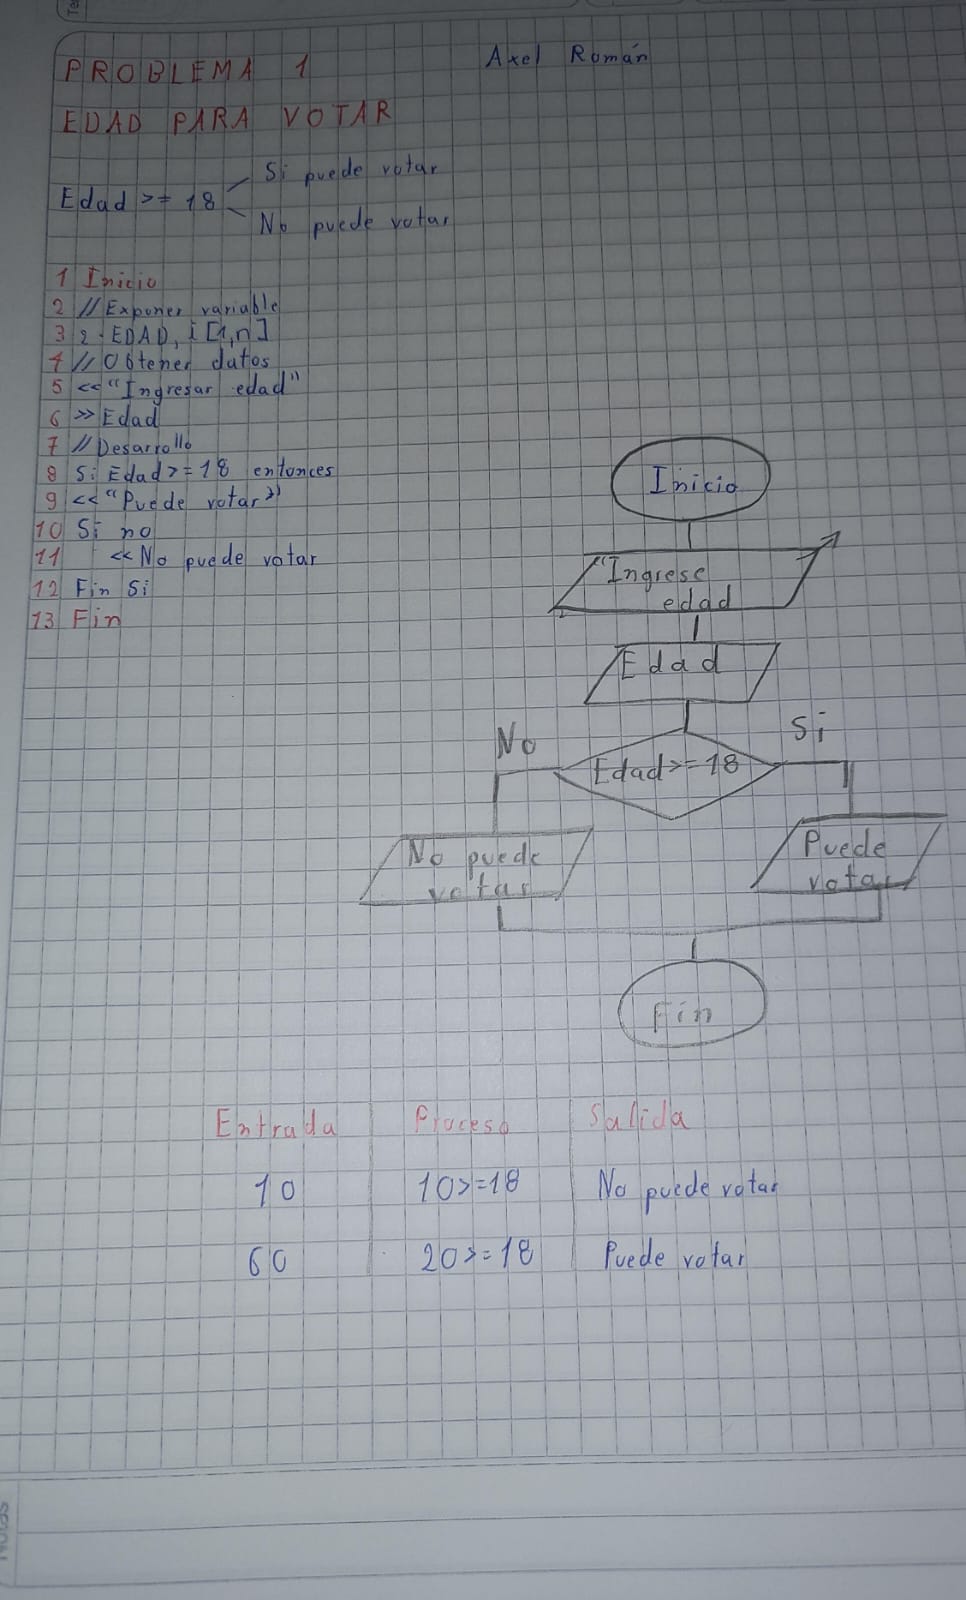 PROBLEMA 1
Axel Román
EDAD PARA VOTAR
Edad >= 18
Si puede votar
No puede votar
1 Inicio
2 // Exponer variable
3 2. EDAD, i [1,n]
4 // Obtener datos
5 << "Ingresar edad"
6 >> Edad
7 // Desarrollo
8 Si Edad >= 18 entonces
9 << "Puede votar"
10 Si no
11 << No puede votar
12 Fin Si
13 Fin
Inicio
"Ingrese
edad
Edad
No
Si
Edad >= 18
No puede
votar
Puede
votar
Fin
Entrada Proceso Salida
10 10>=18 No puede votar
60 20>=18 Puede votar